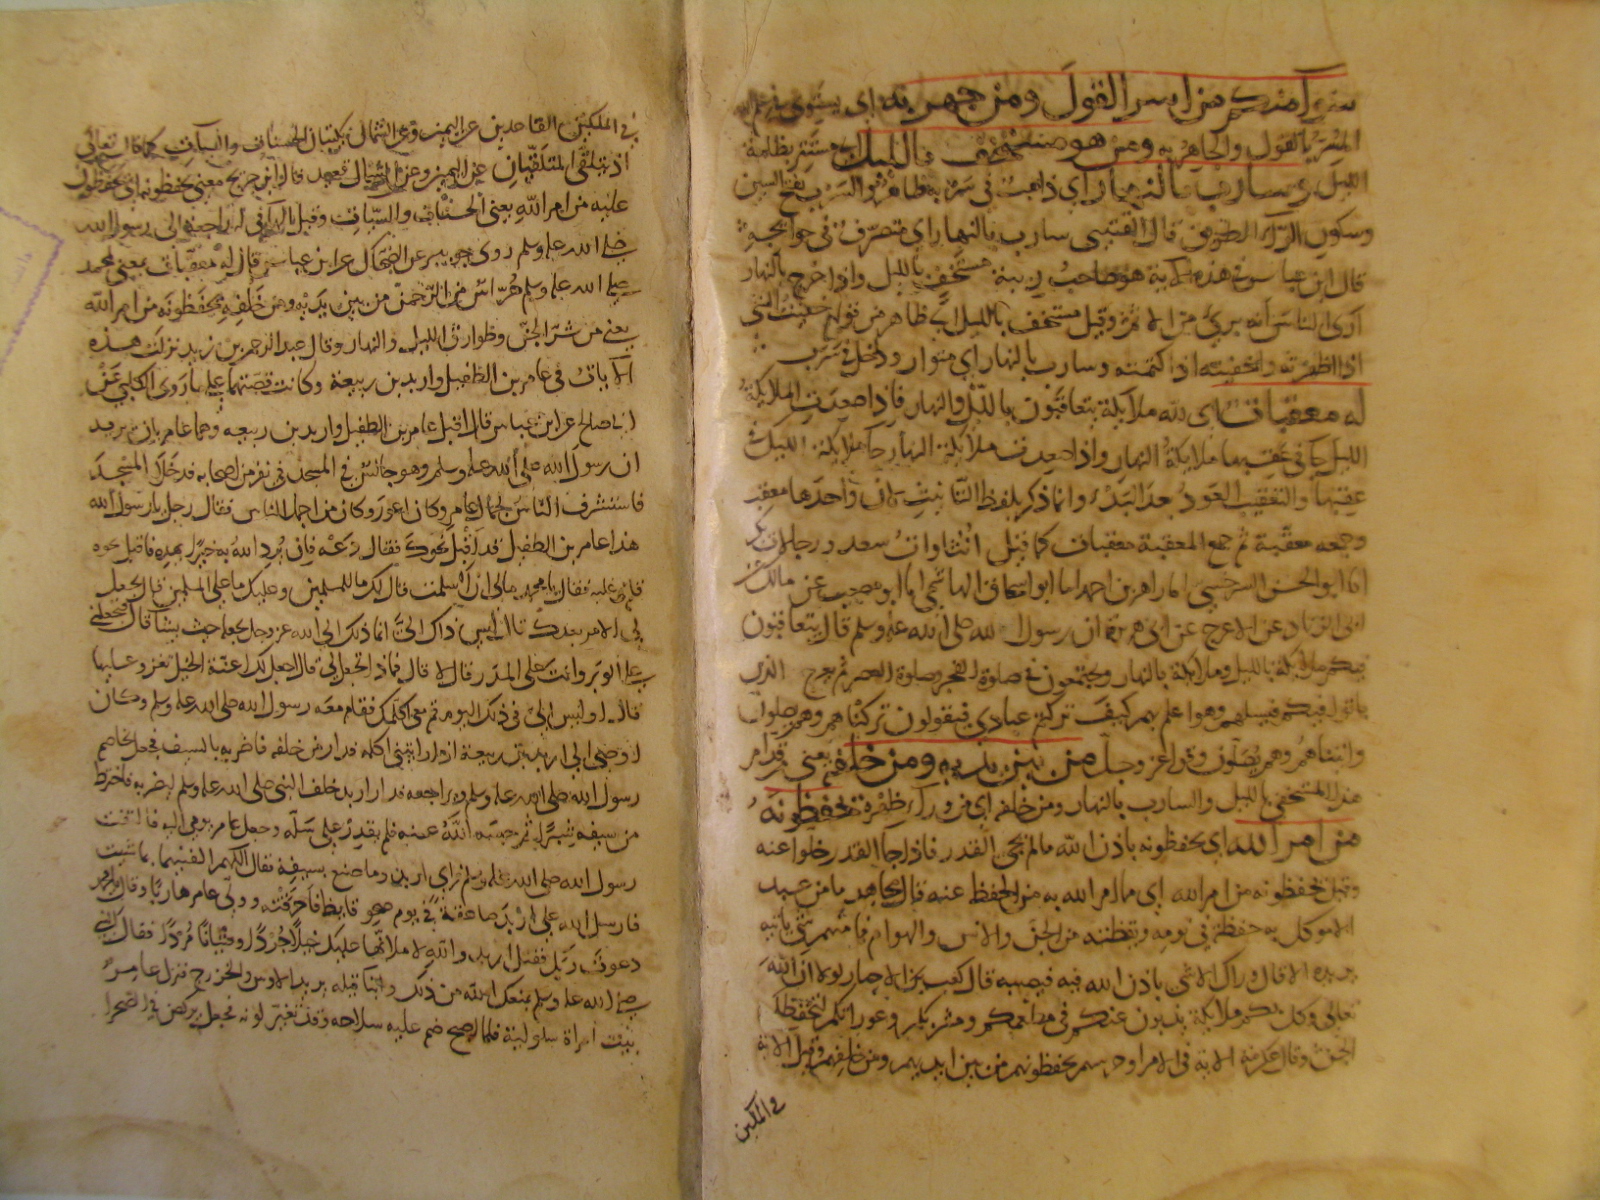 سواء منكم من اسر القول ومن جهر به اي يستوي في علم الله
المسر بالقول والجاهر به ومن هو مستخف بالليل اي مستتر بظلمة
الليل وسارب بالنهار اي ذاهب في سربه ظاهر والسرب بفتح السين
وسكون الرآء الطريق قال القتيبي سارب بالنهار اي متصرف في حوايجه
قال ابن عباس في هذه الاية هو صاحب ريبة مستخف بالليل واذا خرج بالنهار
ارى الناس انه بريء من الاثم وقيل مستخف بالليل اي ظاهر من قولهم خفيت الشي
اذا اظهرته واخفيته اذا كتمته وسارب بالنهار اي متوار وداخل في سرب
له معقبات اي لله ملايكة يتعاقبون بالليل والنهار فاذا صعدت ملايكة
الليل جآ في عقبها ملايكة النهار واذا صعدت ملايكة النهار جآ ملايكة الليل في
عقبها والتعقيب العود بعد البدء وانما ذكر بلفظ التانيث لان واحدها معقب
وجمعه معقبة ثم جمع المعقبة معقبات كما قيل انثاوات سعد ورجالات بكر
انا ابو الحسن السرخسي انا زاهر بن احمد انا ابو اسحاق الهاشمي انا ابو مصعب عن مالك عن
ابي الزناد عن الاعرج عن ابي هريرة ان رسول الله صلى الله عليه وسلم قال يتعاقبون
فيكم ملايكة بالليل وملايكة بالنهار ويجتمعون في صلوة الفجر وصلوة العصر ثم يعرج الذين
باتوا فيكم فيسيلهم وهو اعلم بهم كيف تركتم عبادي فيقولون تركناهم وهم يصلون
واتيناهم وهم يصلون وقوله عز وجل من بين يديه ومن خلفه يعني من قدام
هذا المستخفي بالليل والسارب بالنهار ومن خلفه اي من ورآء ظهره يحفظونه
من امر الله اي يحفظونه باذن الله ما لم يجئ القدر فاذا جآ القدر خلوا عنه
وقيل يحفظونه من امر الله اي مما امر الله به من الحفظ عنه قال مجاهد ما من عبد
الا موكل به حفظة في نومه ويقظته من الجن والانس والهوام فما منهم شي ياتيه
يريده الا قال وراك الا شي باذن الله فيه فيصيبه قال كعب الاحبار لولا ان الله
تعالى وكل بكم ملايكة يذبون عنكم في مطعمكم ومشربكم وعوراتكم لتخطفكم
الجن وقال عكرمة الاية في الامرا وحرسهم يحفظونهم من بين ايديهم ومن خلفهم وقيل الاية
في الملكين
في الملكين القاعدين عن اليمين وعن الشمال يكتبان الحسنات والسيآت كما قال الله تعالى
اذ يتلقى المتلقيان عن اليمين وعن الشمال قعيد قال ابن جريج معنى يحفظونه اي يحفظون
عليه من امر الله يعني الحسنات والسيات وقيل الهآ في له راجعة الى رسول الله
صلى الله عليه وسلم روى جويبر عن الضحاك عن ابن عباس قال له معقبات يعني لمحمد
صلى الله عليه وسلم حراس من الرحمن من بين يديه ومن خلفه يحفظونه من امر الله
يعني من شر الجن وطوارق الليل والنهار وقال عبد الرحمن بن زيد نزلت هذه
الايات في عامر بن الطفيل واربد بن ربيعة وكانت قصتهما على ما روى الكلبي عن
ابي صالح عن ابن عباس قال اقبل عامر بن الطفيل واربد بن ربيعه وهما عامريان يريدان
رسول الله صلى الله عليه وسلم وهو جالس في المسجد في نفر من اصحابه فدخلا المسجد
فاستشرف الناس لجمال عامر وكان اعور وكان من اجمل الناس فقال رجل يا رسول الله
هذا عامر بن الطفيل قد اقبل نحوك فقال دعه فان يرد الله به خيرا يهده فاقبل حتى
قام عليه فقال يا محمد مالي ان اسلمت قال لك ما للمسلمين وعليك ما على المسلمين قال تجعل
لي الامر بعدك قال ليس ذاك اليّ انما ذلك الى الله عز وجل يجعله حيث يشآ قال فتجعلني
على الوبر وانت على المدر قال لا قال فماذا تجعل لي قال اجعل لك اعنة الخيل تغزو عليها
قال اوليس اليّ في ذلك اليوم قم معي اكلمك فقام معه رسول الله صلى الله عليه وسلم وكان
اوصى الى اربد بن ربيعة اذا رايتني اكلمه فدر من خلفه فاضربه بالسيف فجعل يخاصم
رسول الله صلى الله عليه وسلم ويراجعه فدار اربد خلف النبي صلى الله عليه وسلم ليضربه فاخترط
من سيفه شبرا ثم حبسه الله عنه فلم يقدر على سله وجعل عامر يومي اليه فالتفت
رسول الله صلى الله عليه وسلم فراى اربد وما صنع بسيفه فقال اللهم اكفنيهما بما شيت
فارسل الله على اربد صاعقة في يوم صحو قايظ فاحرقته وولى عامر هاربا وقال يا محمد
دعوت ربك فقتل اربد والله لاملانها عليك خيلا جردا وفتيانا مردا فقال النبي
صلى الله عليه وسلم يمنعك الله من ذلك وابنا قيله يريد الاوس والخزرج فنزل عامر
بيت امراة سلولية فلما اصبح ضم عليه سلاحه وقد تغير لونه فجعل يركض في الصحرا